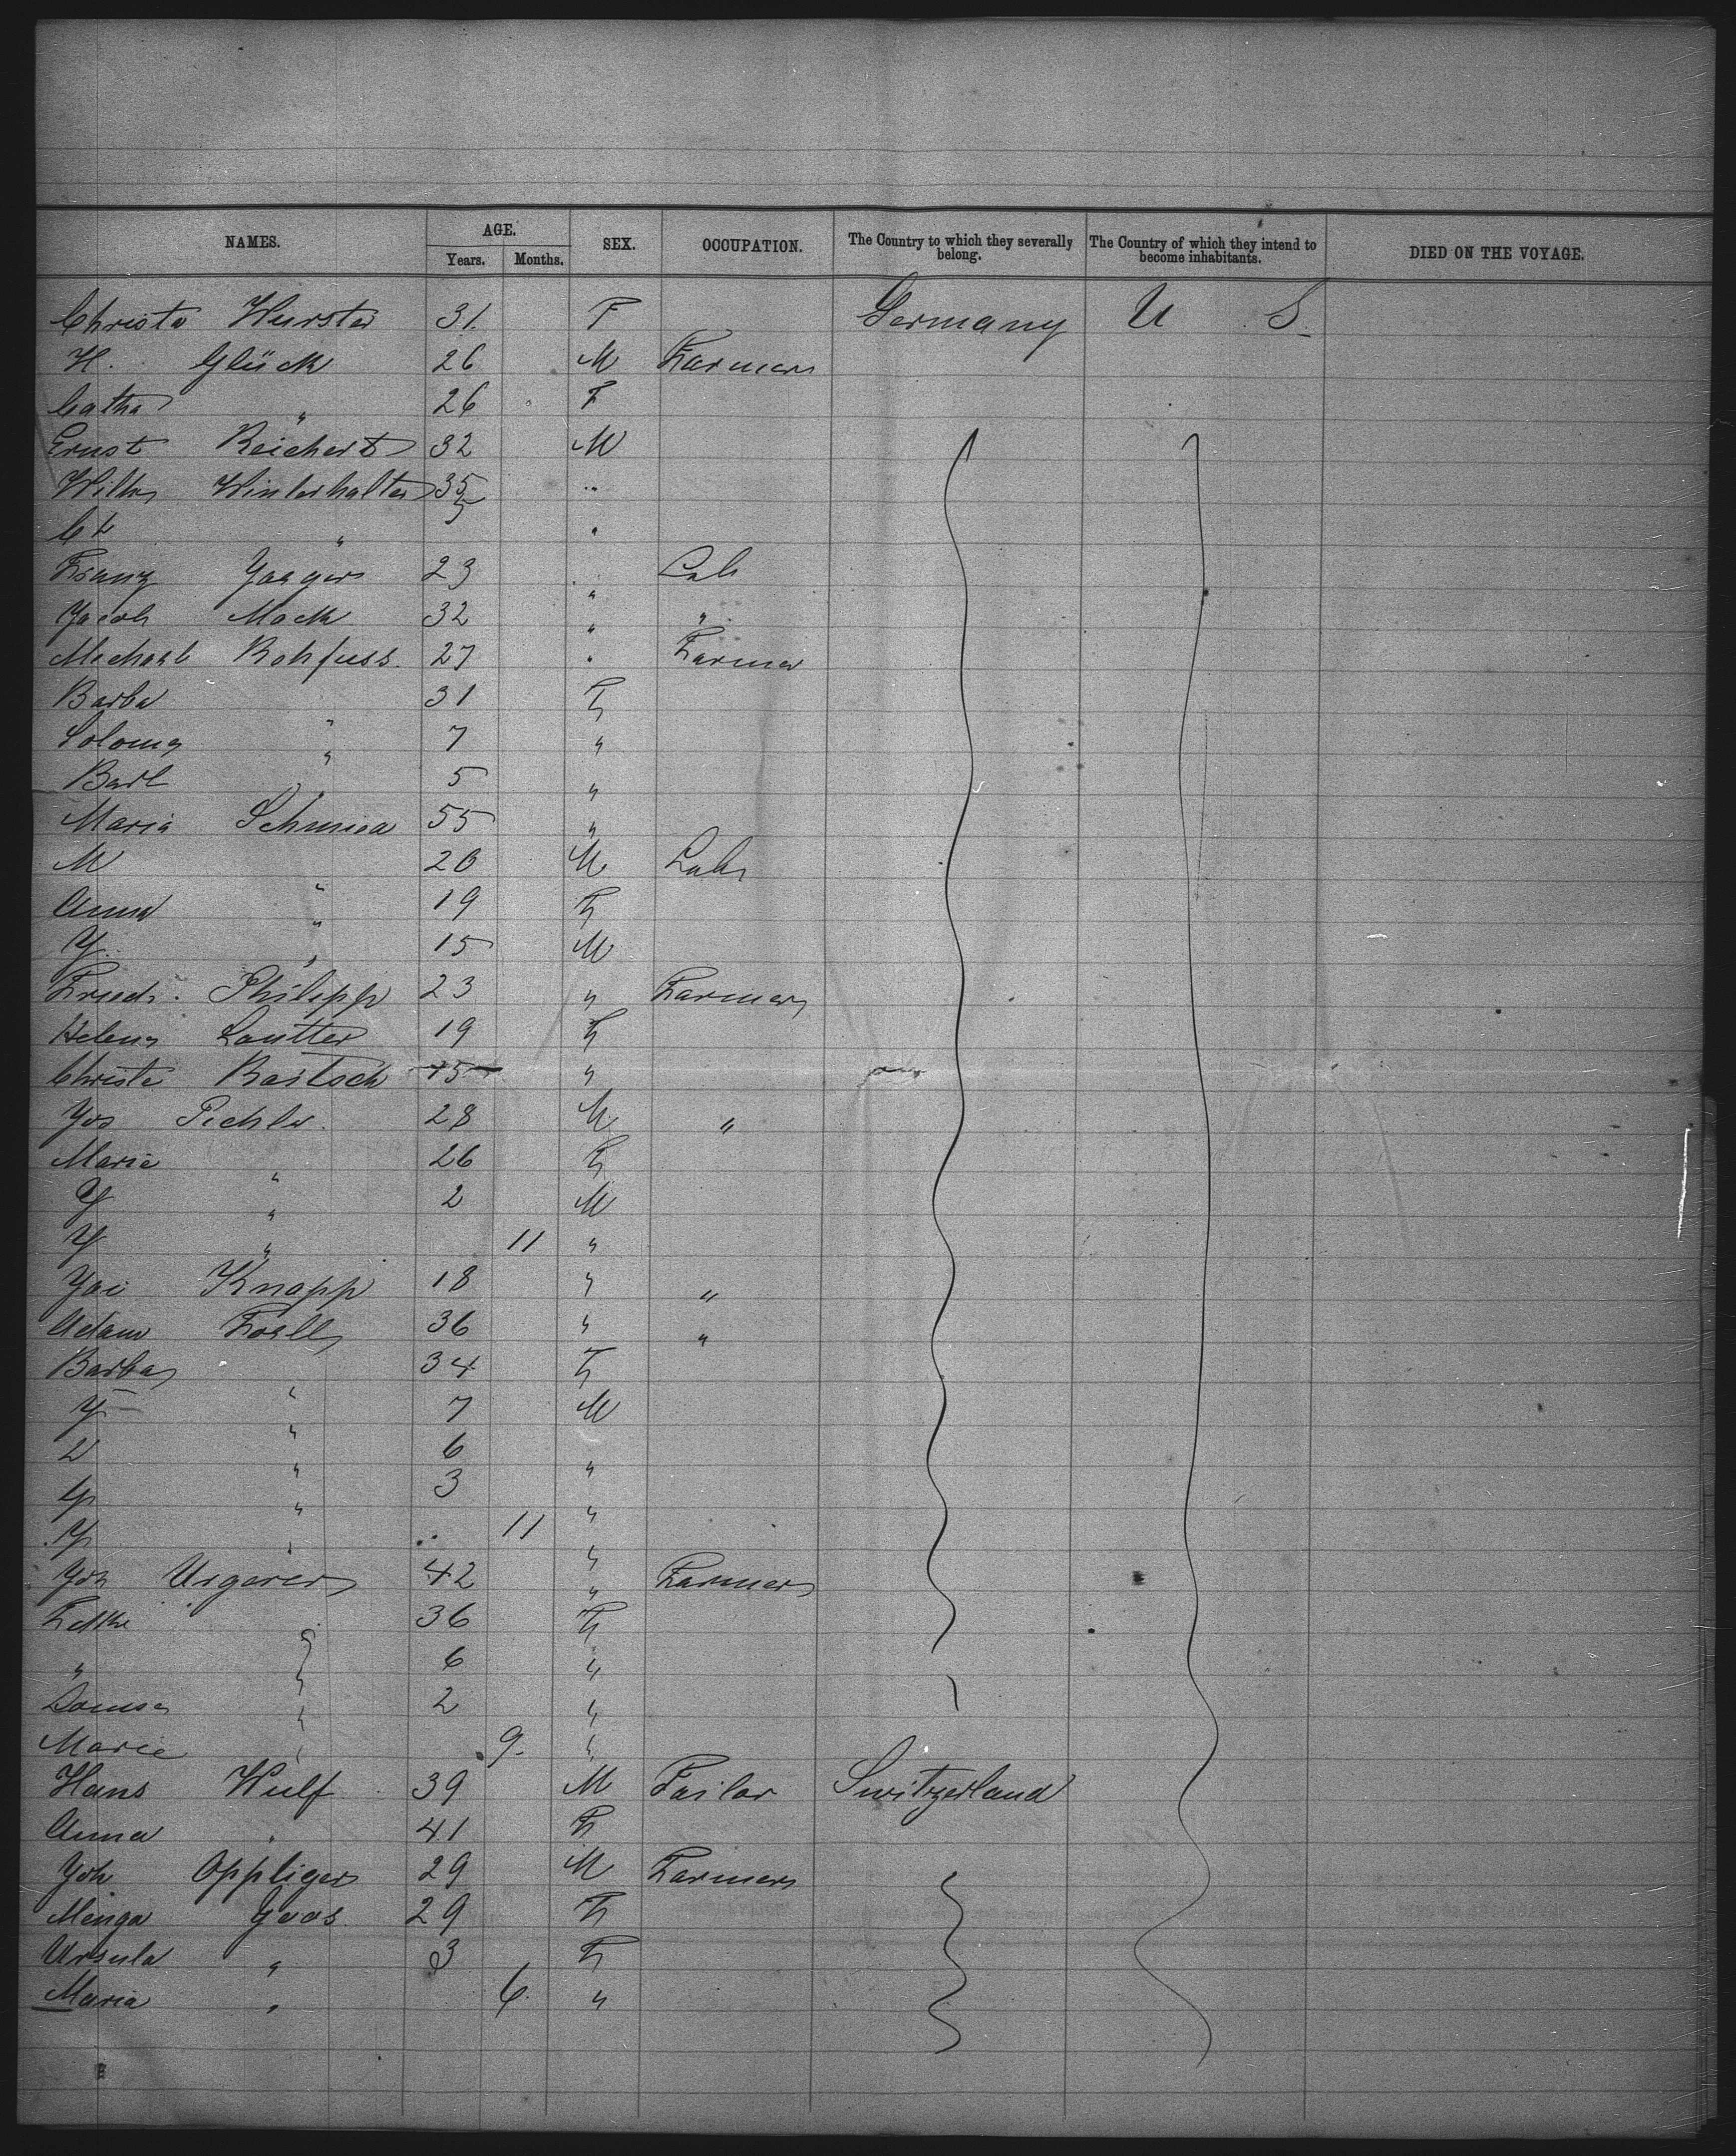 NAMES. AGE. SEX. OCCUPATION. The Country to which they severally belong. The Country of which they intend to become inhabitants. DIED ON THE VOYAGE.
Years. Months.
Christe Wurster 31 F Germany U S
H. Glück 26 M Farmer
Catha " 26 F
Ernst Reichert 32 M
Wilh Winterhalter 35 "
" 5 "
Franz Jaeger 23 " Lab
Jacob Mock 32 " "
Michael Rohfuss 27 " Farmer
Barba " 31 F
7 "
5 "
Maria 55 "
M " 20 M Lab
Anna " 19 F
J. " 15 M
Friedr. Philipp 23 " Farmer
Helen Lautter 19 F
Christe Bartsch 45 "
Jos Pichler 28 M "
Marie " 26 F
J " 2 M
J " 11 "
Jac Knapp 18 " "
Adam Foell 36 " "
Barba " 34 F
J " 7 M
L " 6 "
G " 3 "
J " 11 "
Joh 42 " Farmer
36 F
" " 6 "
Louise " 2 "
Marie " 9 "
Hans Wulf 39 M Tailor Switzerland
Anna " 41 F
Joh Oppliger 29 M Farmer
Menga Joos 29 F
Ursula " 3 F
Maria " 6 "